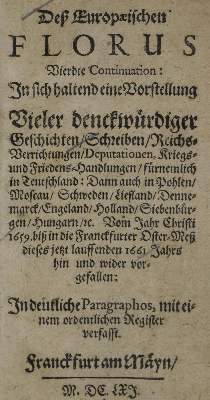 Deß Europæischen
FLORUS
Vierdte Continuation:
In sich haltend eine Vorstellung
Vieler denckwürdiger
Geschichten/Schreiben/Reichs-
Verrichtungen/Deputationen, Kriegs-
und Friedens-Handlungen/fürnemlich
in Teutschland: Dann auch in Pohlen/
Moscau/Schweden/Liefland/Denne-
marck/Engeland/Holland/Siebenbür-
gen/Hungarn/ec. Vom Jahr Christi
1659. biß in die Franckfurter Oster-Meß
dieses jetzt lauffenden 1661. Jahrs
hin und wider vor-
gefallen:
In deutliche Paragraphos, mit ei-
nem ordentlichen Register
verfasst.
Franckfurt am Mäyn/
M. DC. LXI.